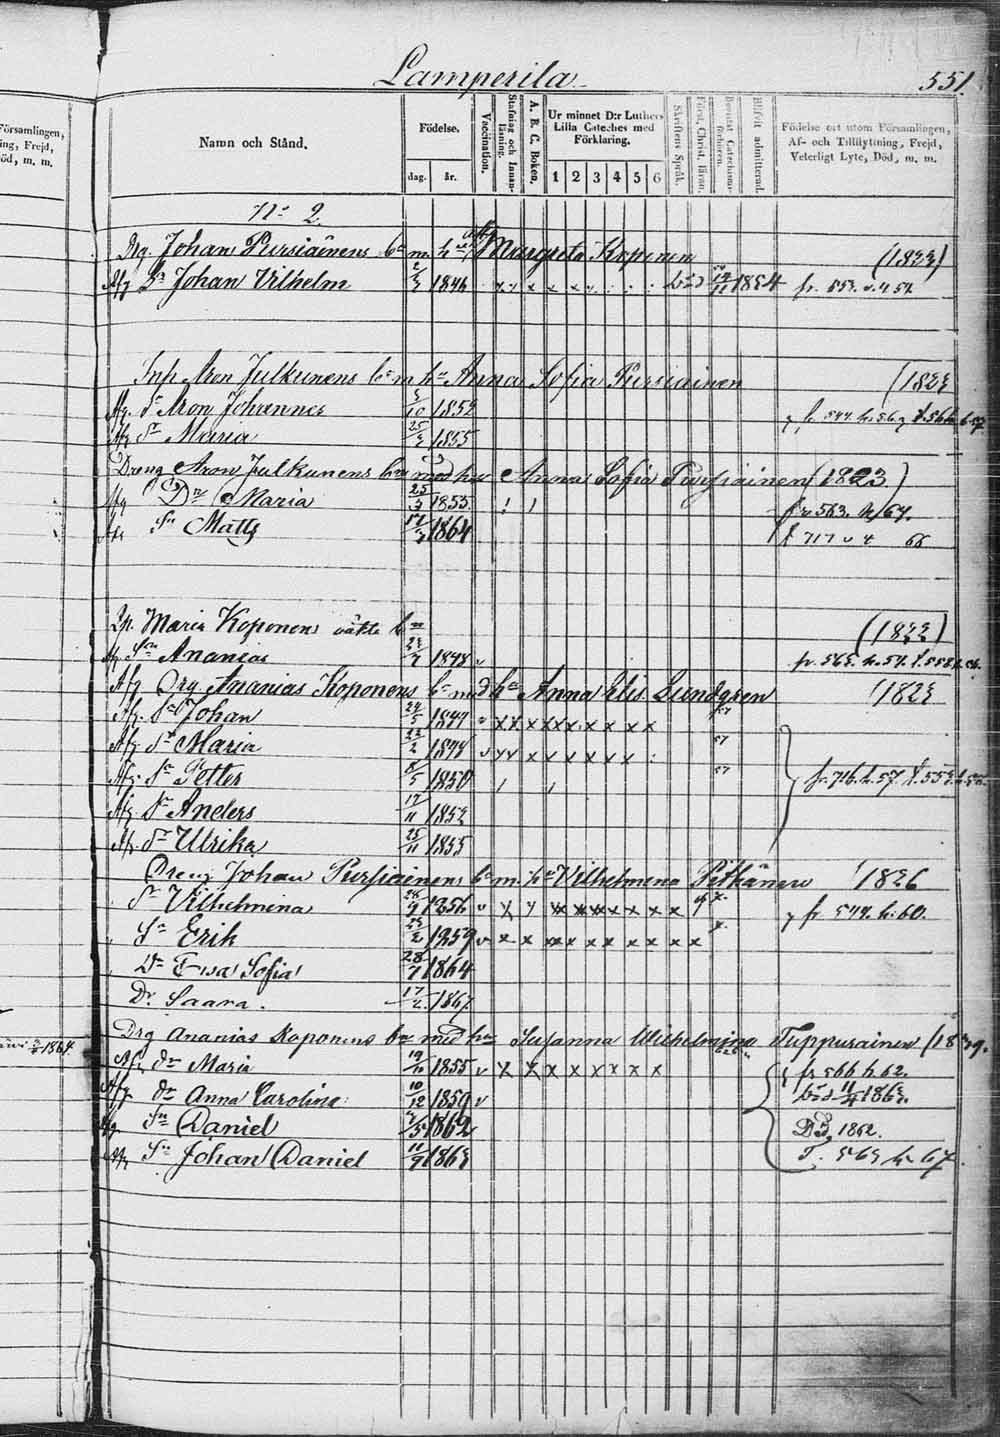 Lamperila
551.
Församlingen,
ing, Frejd,
öd, m. m.
Namn och Stånd.
Födelse.
dag.
år.
Vaccination.
Stafning och Innanläsning.
A. B. C. Boken.
Ur minnet D:r Luthers Lilla Cateches med Förklaring.
1 2 3 4 5 6
Skriftens Språk.
Först. Christ. läran.
Bevistat Catechismiförhören.
Blifvit admitterad.
Födelse ort utom Församlingen, Af- och Tillflyttning, Frejd, Veterligt Lyte, Död, m. m.
No 2.
Drg. Johan Pursiainens bn m. h. Margreta Koponen (1822)
Afg Sn Johan Vilhelm 1846 1854 fr. 553. 54
Inh Aron Julkunens bn m hu Anna Sofia Pursiainen (1823
Afg. Sn Aron Johannes 5/10 1852 fr. 544. h. 56
Afg Dr Maria 25/3 1855
Dreng Aron Julkunens bn med hu Anna Sofia Pursiainen (1823)
Afg Dr Maria 25/3 1855 fr 563. h/64.
Afg Sn Matts 17/7 1864 f 717 v 4 66
Maria Koponens oäkta bn (1822)
Afg Son Ananias 1848 fr. 565. h. 54.
Afg Drg Ananias Koponens bn med hu Anna Elis. Lundgren (1823
Afg. Sn Johan 24/5 1847 57
Afg Dr Maria 23/2 1848 57
Afg Sn Petter 8/5 1850 57 fr. 716. h. 57.
Afg Sn Anders 17/11 1852
Afg. Dr Ulrika 25/11 1855
Dreng Johan Pursiainens bn m. hu Vilhelmina Pitkänen 1826
Dr Vilhelmina 28/9 1856 fr 544. h. 60.
Sn Erik 25/2 1859
Dr Ewa Sofia 28/7 1864
Dr Saara. 17/2 1867.
Drg Ananias Koponens bn med hu Susanna Wilhelmina Tuppurainen (1829.
1864.
Afg dr Maria 19/10 1855 fr 566 h 62.
Afg. dr Anna Carolina 10/12 1859 1863.
Afg Sn Daniel 1862 Dö 1862.
Afg Sn Johan Daniel 11/9 1863 T. 563 h 67.